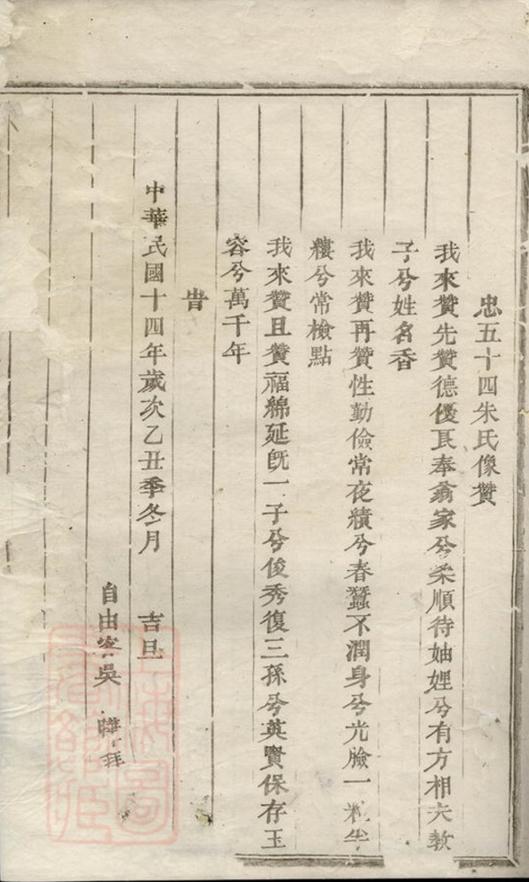 忠五十四朱氏像贊
我來贊先贊德優良奉翁家兮柔順待妯娌兮有方相夫教
子兮姓名香
我來贊再贊性勤儉常夜績兮春蠶不潤身兮光臉一粒半
縷兮常檢點
我來贊且贊福綿延旣一子兮俊秀復三孫兮英賢保存玉
容兮萬千年
旹
中華民國十四年歲次乙丑季冬月 吉旦
自由客吳 拜